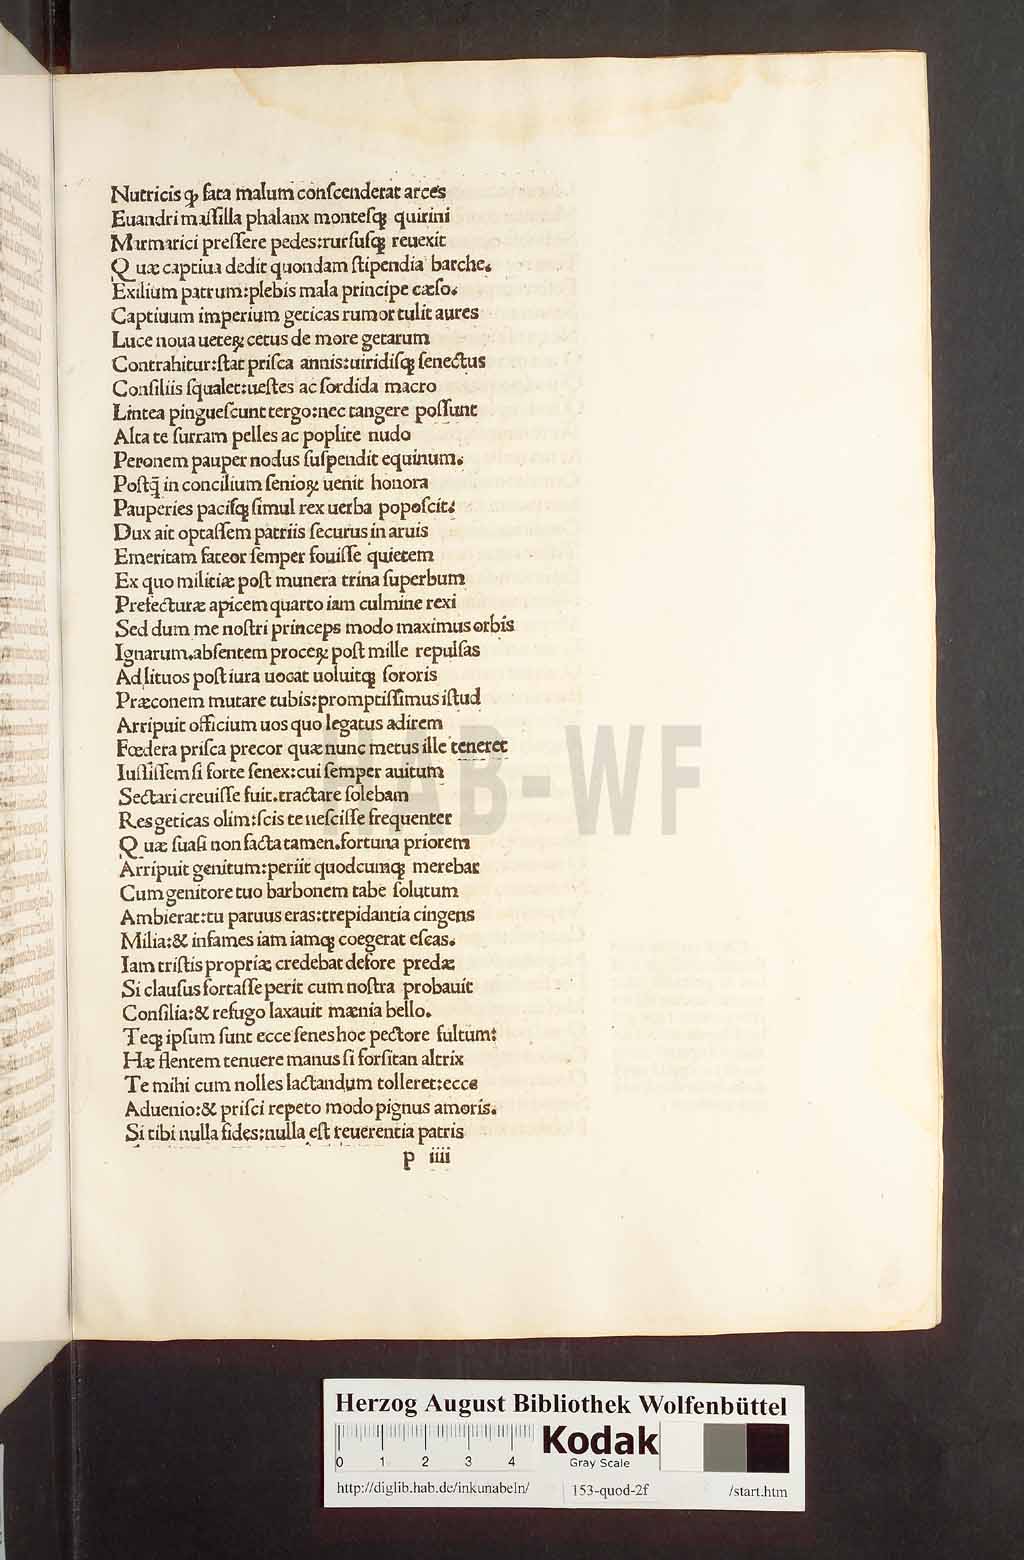 Nutricis ꝙ fata malum conſcenderat arces
Euandri maſſilla phalanx monteſqꝫ quirini
Marmarici preſſere pedes:rurſuſqꝫ reuexit
Quæ captiua dedit quondam ſtipendia barche.
Exilium patrum:plebis mala principe cæſo.
Captiuum imperium geticas rumor tulit aures
Luce noua ueteꝝ cetus de more getarum
Contrahitur:ſtat priſca annis:uiridiſqꝫ ſenectus
Conſiliis ſqualet:ueſtes ac ſordida macro
Lintea pingueſcunt tergo:nec tangere poſſunt
Alta te ſurram pelles ac poplite nudo
Peronem pauper nodus ſuſpendit equinum.
Poſtq̃ in concilium ſenioꝝ uenit honora
Pauperies paciſqꝫ ſimul rex uerba popoſcit:
Dux ait optaſſem patriis ſecurus in aruis
Emeritam fateor ſemper fouiſſe quietem
Ex quo militiæ poſt munera trina ſuperbum
Prefecturæ apicem quarto iam culmine rexi
Sed dum me noſtri princeps modo maximus orbis
Ignarum.abſentem proceꝝ poſt mille repulſas
Ad lituos poſt iura uocat uoluitqꝫ ſororis
Præconem mutare tubis:promptiſſimus iſtud
Arripuit officium uos quo legatus adirem
Fœdera priſca precor quæ nunc metus ille teneret
Iuſſiſſem ſi forte ſenex:cui ſemper auitum
Sectari creuiſſe fuit.tractare ſolebam
Res geticas olim:ſcis te neſciſſe frequenter
Quæ ſuaſi non facta tamen.fortuna priorem
Arripuit genitum:periit quodcumqꝫ merebar
Cum genitore tuo barbonem tabe ſolutum
Ambierat:tu paruus eras:trepidantia cingens
Milia:& infames iam iamqꝫ coegerat eſcas.
Iam triſtis propriæ credebat defore predæ
Si clauſus fortaſſe perit cum noſtra probauit
Conſilia:& refugo laxauit mænia bello.
Teqꝫ ipſum ſunt ecce ſenes hoc pectore fultum:
Hæ flentem tenuere manus ſi forſitan altrix
Te mihi cum nolles lactandum tolleret:ecce
Aduenio:& priſci repeto modo pignus amoris.
Si tibi nulla fides:nulla eſt reuerentia patris
p iiii
HAB-WF
Herzog August Bibliothek Wolfenbüttel
0 1 2 3 4
Kodak
Gray Scale
http://diglib.hab.de/inkunabeln/ 153-quod-2f /start.htm